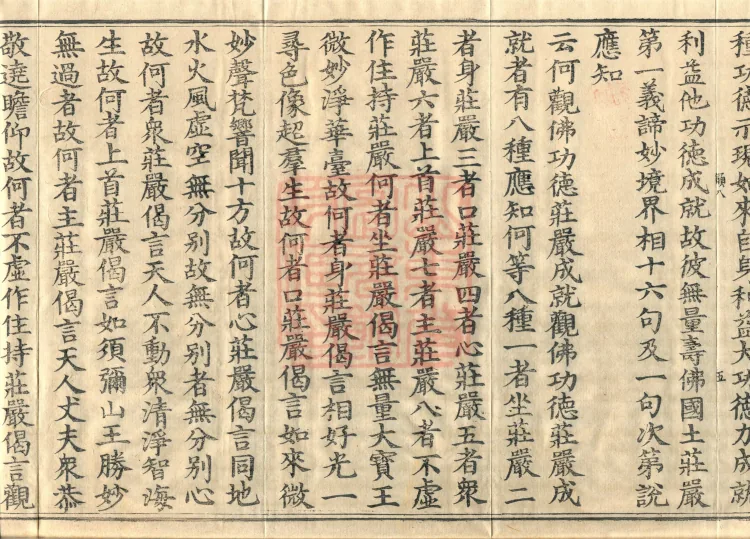 種功德示現如來自身利益大功德力成就
利益他功德成就故彼無量壽佛國土莊嚴
第一義諦妙境界相十六句及一句次第說
應知
云何觀佛功德莊嚴成就觀佛功德莊嚴成
就者有八種應知何等八種一者坐莊嚴二
者身莊嚴三者口莊嚴四者心莊嚴五者衆
莊嚴六者上首莊嚴七者主莊嚴八者不虛
作住持莊嚴何者坐莊嚴偈言無量大寶王
微妙淨華臺故何者身莊嚴偈言相好光一
尋色像超羣生故何者口莊嚴偈言如來微
妙聲梵響聞十方故何者心莊嚴偈言同地
水火風虛空無分別故無分別者無分別心
故何者衆莊嚴偈言天人不動衆清淨智海
生故何者上首莊嚴偈言如須彌山王勝妙
無過者故何者主莊嚴偈言天人丈夫衆恭
敬遶瞻仰故何者不虛作住持莊嚴偈言觀